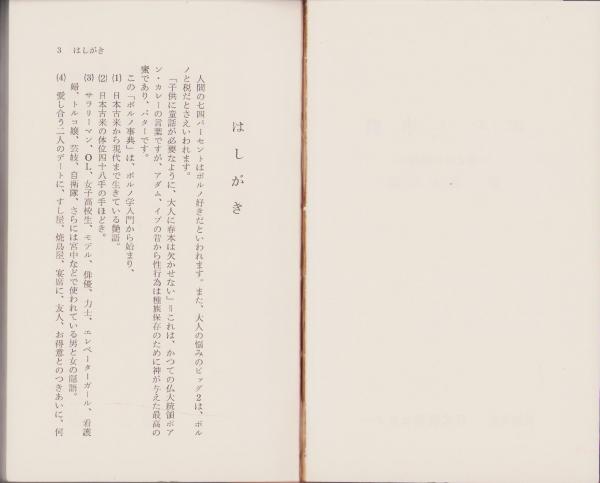 3 はしがき
はしがき
人間の七四パーセントはポルノ好きだといわれます。また、大人の悩みのビッグ2は、ポル
ノと税だとさえいわれます。
「子供に童話が必要なように、大人に春本は欠かせない」＝これは、かつての仏大統領ポア
ン・カレーの言葉ですが、アダム、イブの昔から性行為は種族保存のために神が与えた最高の
蜜であり、バターです。
この「ポルノ事典」は、ポルノ学入門から始まり、
(1) 日本古来から現代まで生きている艶語。
(2) 日本古来の体位四十八手の手ほどき。
(3) サラリーマン、OL、女子高校生、モデル、俳優、力士、エレベーターガール、看護
婦、トルコ嬢、芸妓、自衛隊、さらには宮中などで使われている男と女の隠語。
(4) 愛し合う二人のデートに、すし屋、焼鳥屋、宴席に、友人、お得意とのつきあいに、何